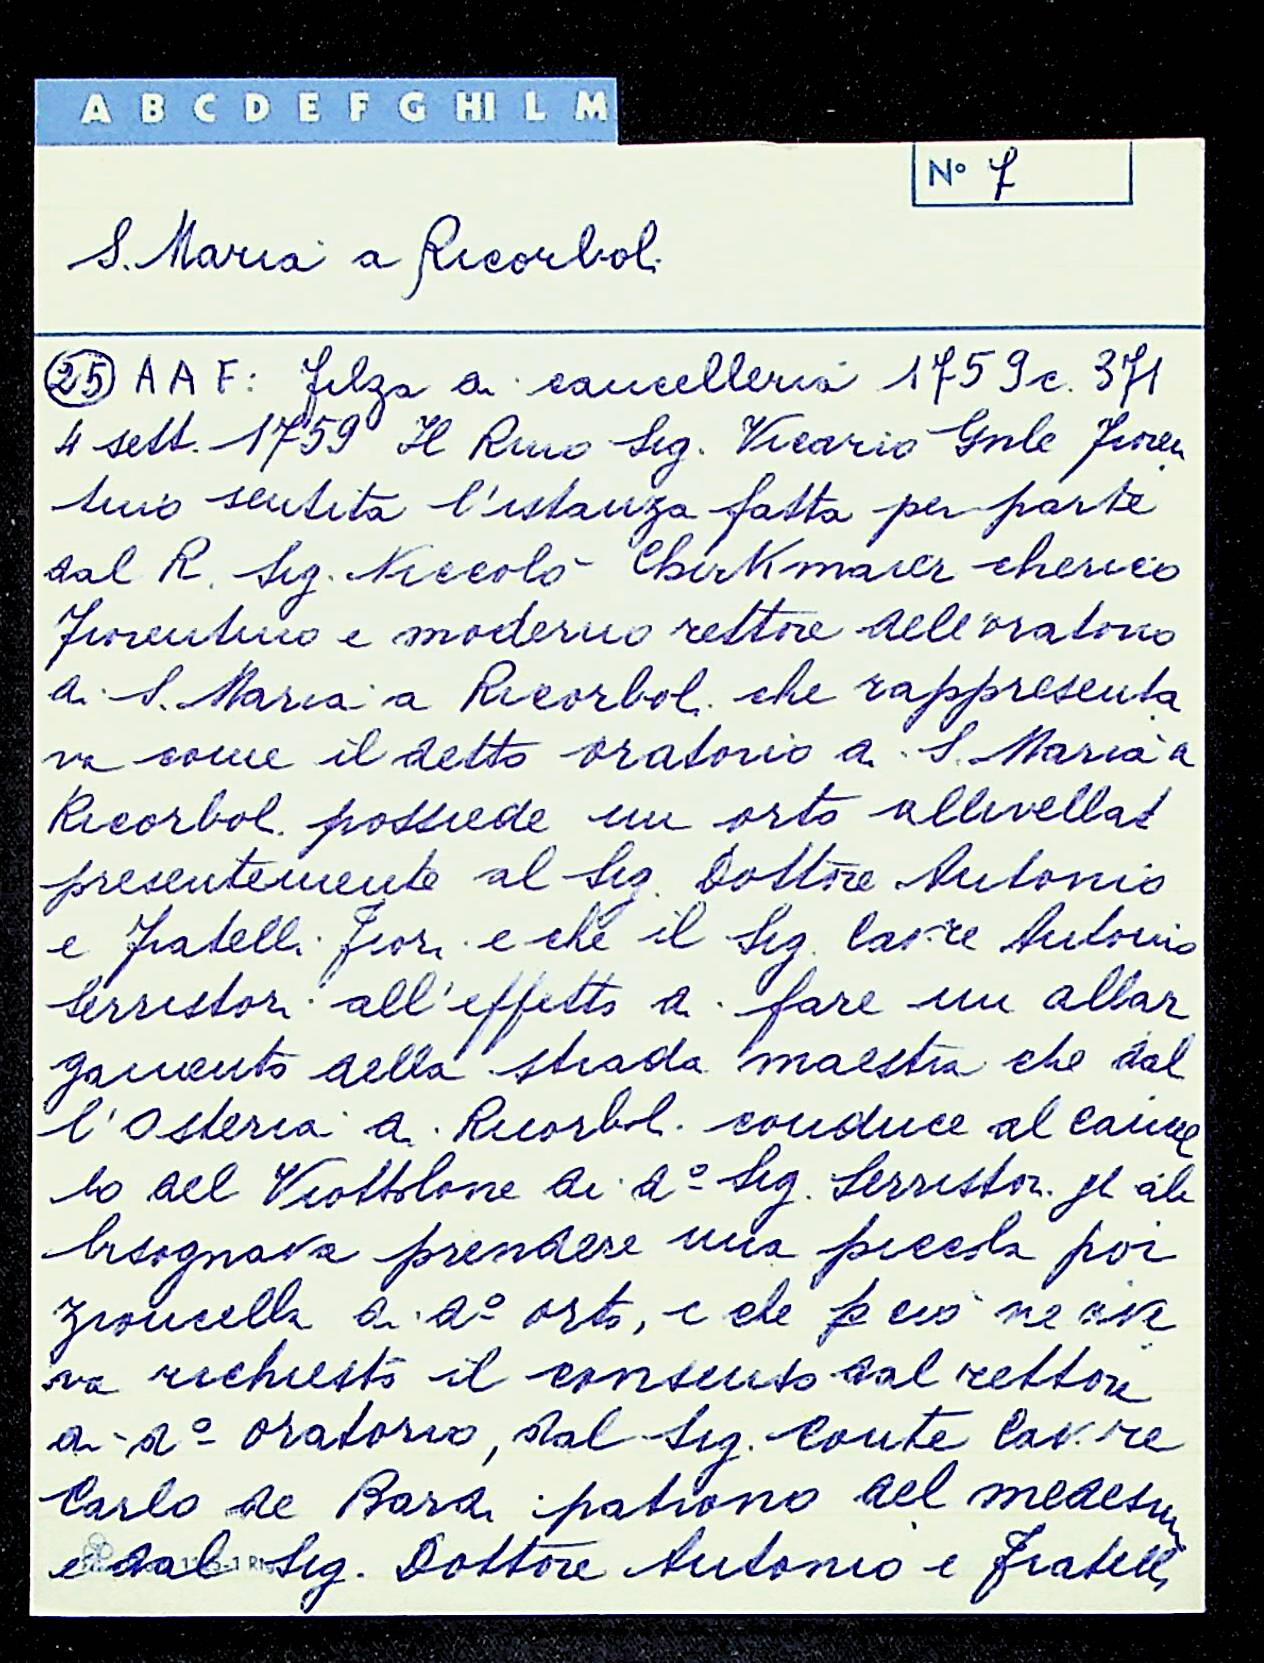 A B C D E F G HI L M
N° 7
S. Maria a Ricorboli
(25) AAF: Filza di cancelleria 1759 c. 371
4 sett. 1759 Il Rmo Sig. Vicario Gnle Fioren
tino sentita l'istanza fatta per parte
dal R. Sig. Niccolò Chirkmaier cherico
Fiorentino e moderno rettore dell'oratorio
di S. Maria a Ricorboli che rappresenta
va come il detto oratorio di S. Maria a
Ricorboli possiede un orto allivellat
presentemente al Sig. Dottore Antonio
e Fratelli Fiori e che il Sig. Cav.re Antonio
Serristori all'effetto di fare un allar
gamento della strada maestra che dal
l'Osteria di Ricorboli conduce al Cancel
lo del Viottolone di d° Sig. Serristori gli ab
bisognava prendere una piccola por
zioncella di d° orto, e che p ciò ne ave
va richiesto il consenso dal rettore
di d° oratorio, dal Sig. Conte Cav.re
Carlo de Bardi patrono del medesim
e dal Sig. Dottore Antonio e Fratelli